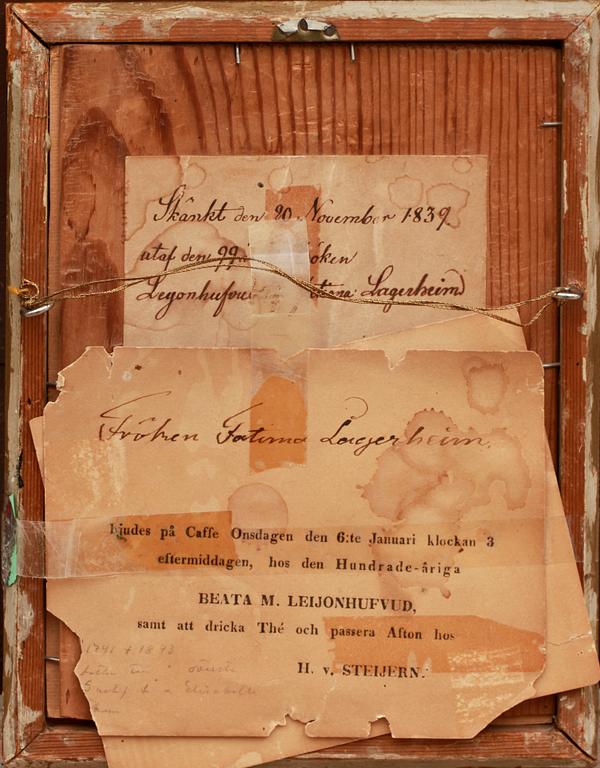 Skänkt den 20 November 1839
utaf den 99 öken
Leyonhufvu Lagerheim
Fröken Fatima Lagerheim.
Bjudes på Caffe Onsdagen den 6:te Januari klockan 3
eftermiddagen, hos den Hundrade-åriga
BEATA M. LEIJONHUFVUD,
samt att dricka Thé och passera Afton hos
H. v. STEIJERN.